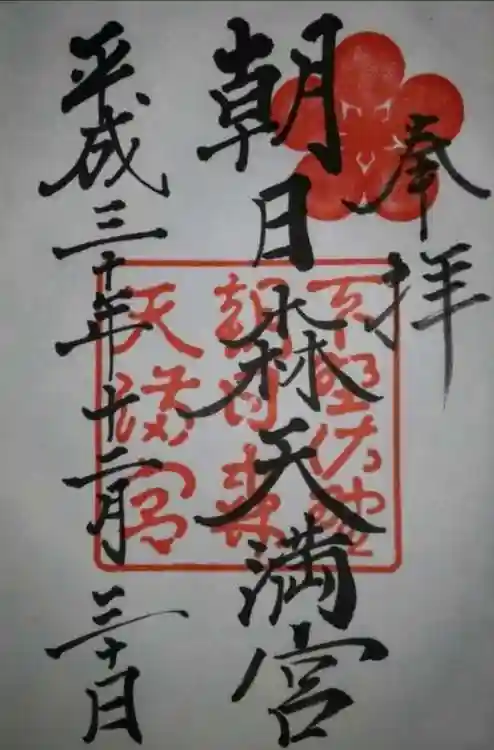 奉拝
朝日森天満宮
平成三十年十二月三十日
下野佐野
朝日森
天満宮